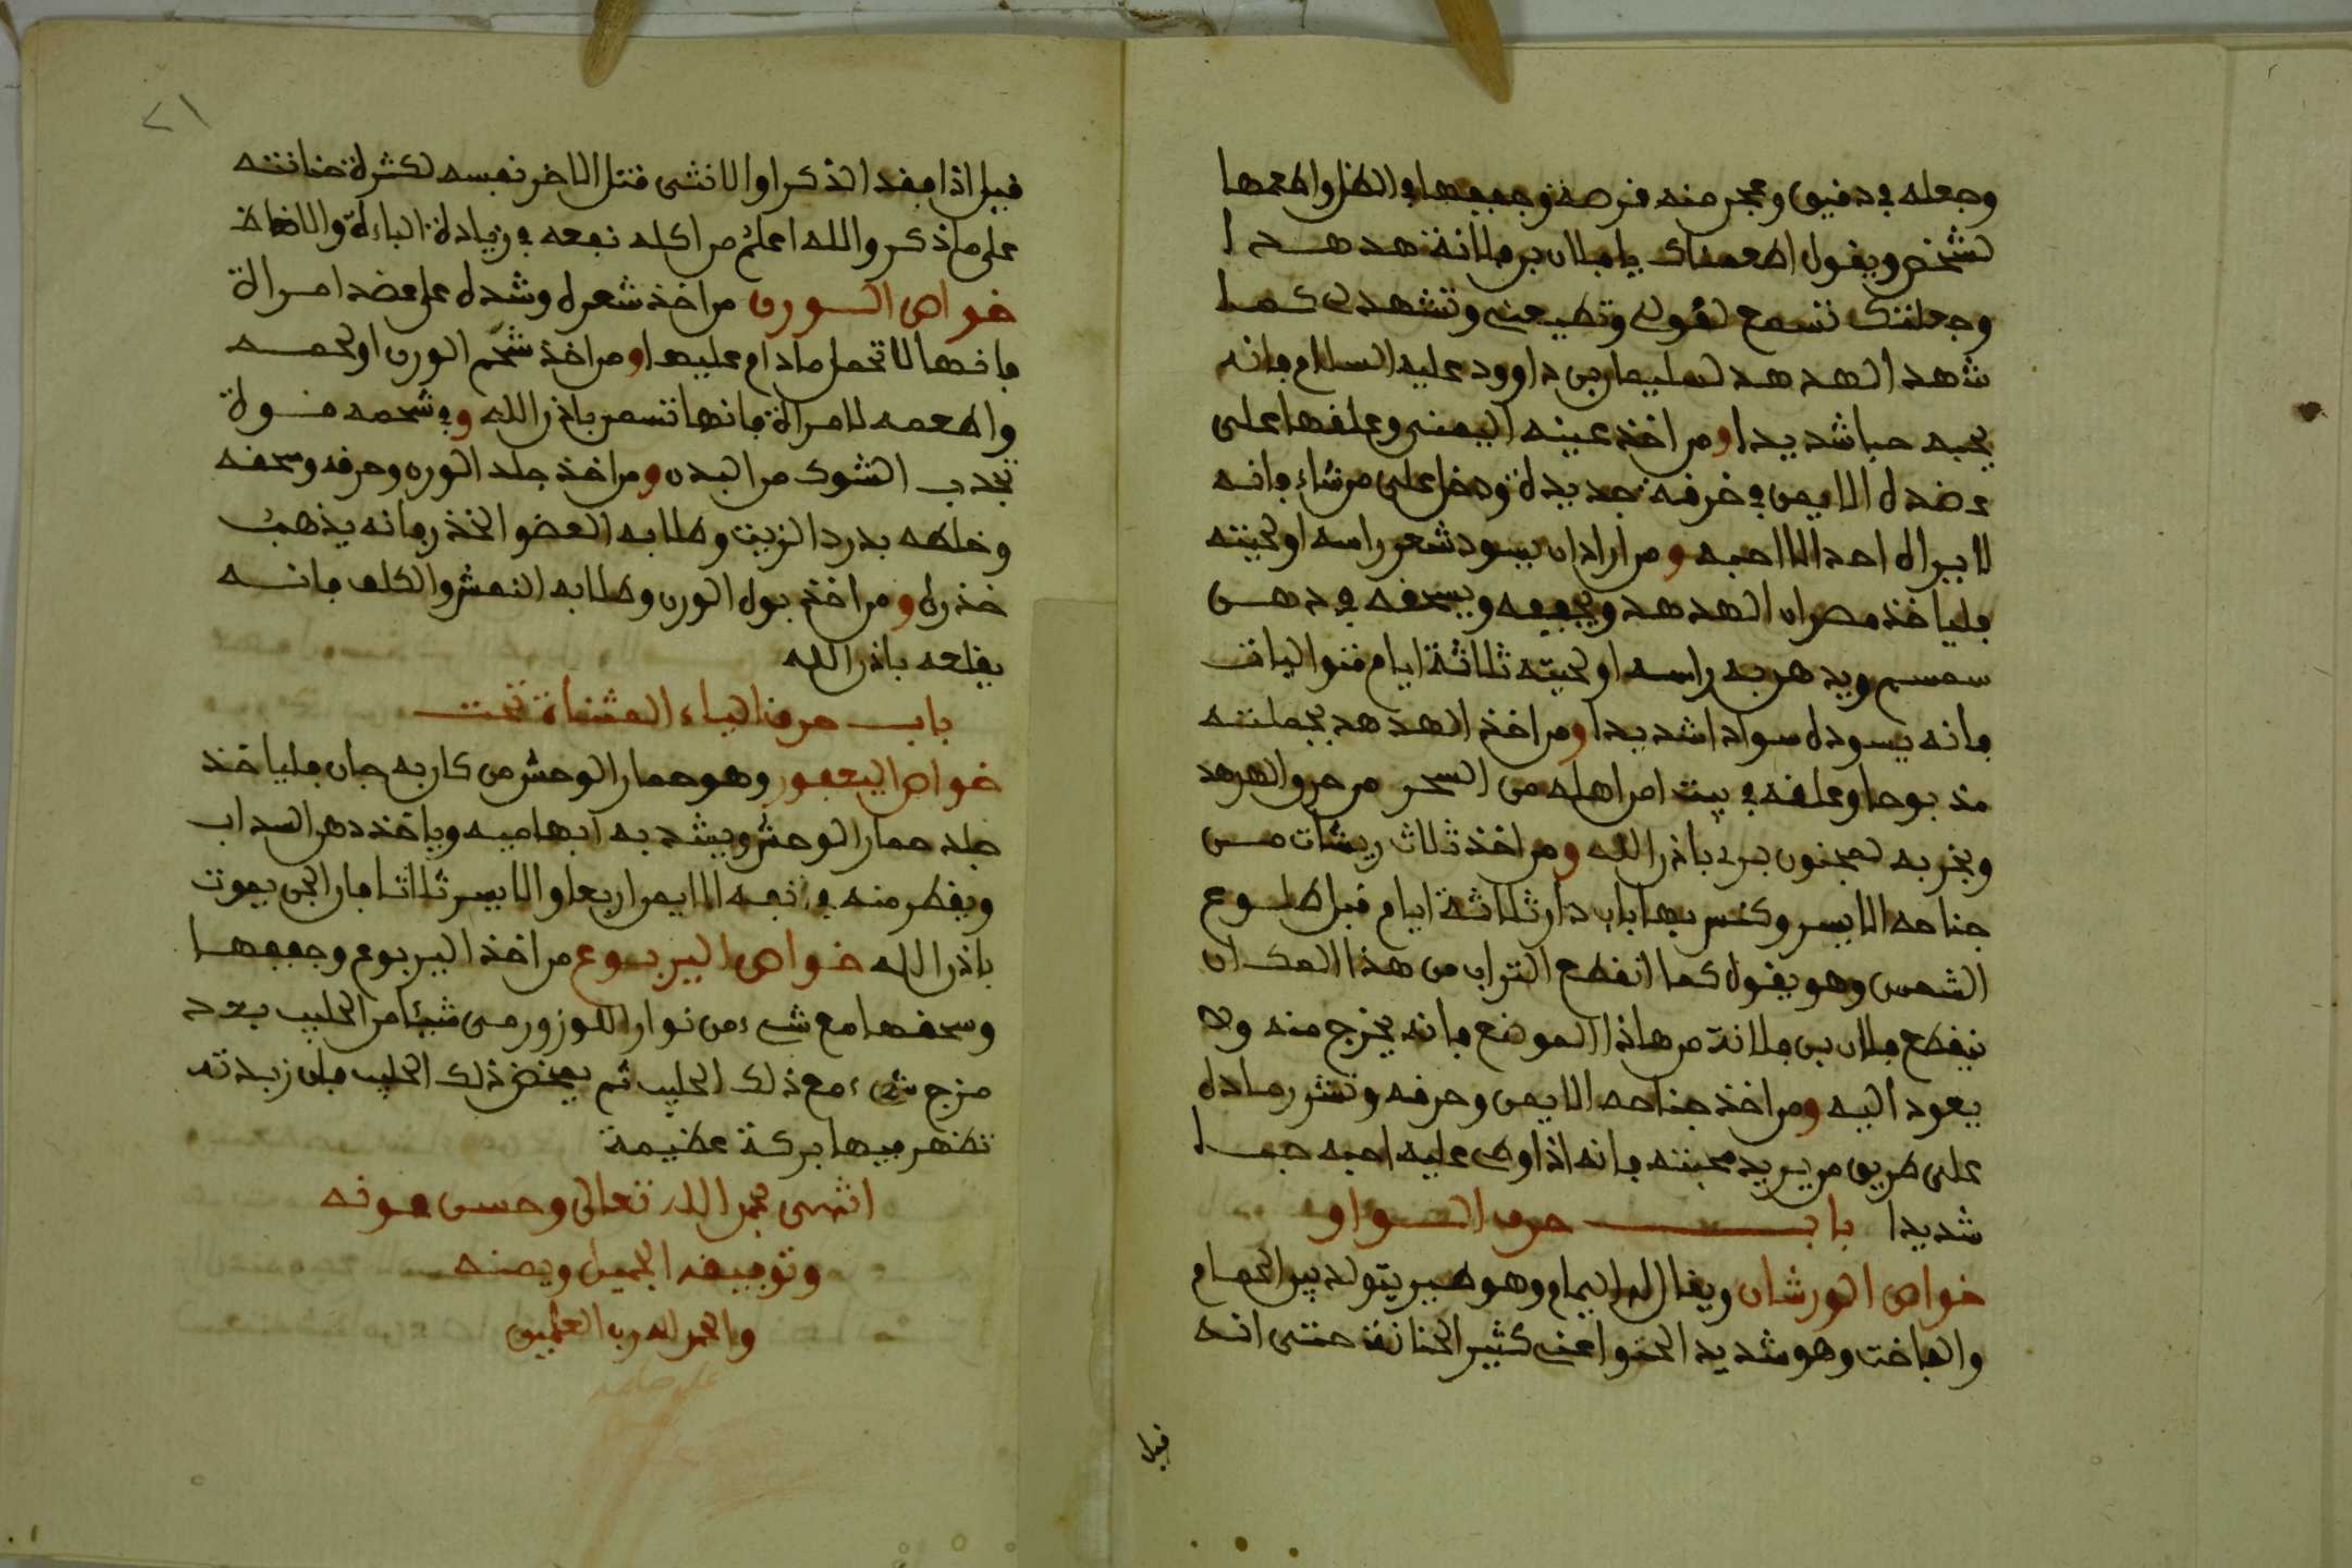 وجعله في دقيق وعجن منه قرصة وجففها في الظل واطعمها
لشخص ويقول اطعمناك يا فلان بن فلانة هدهدا
وجعلتك تسمع لقولي وتطيعني وتشهد لي كما
شهد الهدهد لسليمان بن داوود عليه السلام فانه
يحبه حبا شديدا ومن اخذ عينه اليمنى وعلقها على
عضده الايمن في خرقة جديدة ودخل على من شاء فانه
لا يراه احد الا احبه ومن اراد ان يسود شعر راسه او لحيته
فلياخذ مصران الهدهد ويجففه ويسحقه في دهن
سمسم ويدهن به راسه او لحيته ثلاثة ايام متواليات
فانه يسوده سوادا شديدا ومن اخذ الهدهد بجملته
مذبوحا وعلقه في بيت امن اهله من السحر من حرق الهدهد
وبخر به لمجنون برئ باذن الله ومن اخذ ثلاث ريشات من
جناحه الايسر وكنس بها باب دار ثلاثة ايام قبل طلوع
الشمس وهو يقول كما انقطع التراب من هذا المكان
ينقطع فلان بن فلانة من هاذا الموضع فانه يخرج منه ولا
يعود اليه ومن اخذ جناحه الايمن وحرقه ونثر رماده
على طريق من يريد محبته فانه اذا وطى عليه احبه حبا
شديدا باب حرف الواو
خواص الورشان ويقال له اليمام وهو طير يتولد بين الحمام
والفاخت وهو شديد الحنو اعني كثير الحنانة حتى انه
قيل
٢١
قيل اذا فقد الذكر او الانثى قتل الاخر نفسه لكثرة حنانته
على ما ذكر والله اعلم من اكله نفعه في زيادة الباءة والانعاظ
خواص الورن من اخذ شعره وشده على عضد امراة
فانها لا تحمل ما دام عليها ومن اخذ شحم الورن او لحمه
واطعمه لامراة فانها تسمن باذن الله وفي شحمه قوة
تجذب الشوك من البدن ومن اخذ جلد الورن وحرقه وسحقه
وخلطه بدرد الزيت وطلا به العضو الخذر فانه يذهب
خذره ومن اخذ بول الورن وطلا به النمش والكلف فانه
يقلعه باذن الله
باب حرف الياء المثناة تحت
خواص اليعفور وهو حمار الوحش من كان به جان فلياخذ
جلد حمار الوحش ويشد به ابهاميه وياخذ دهن السداب
ويقطر منه في انفه الايمن اربعا والايسر ثلاثا فان الجن يموت
باذن الله خواص اليربوع من اخذ اليربوع وجففها
وسحقها مع شيء من نوار اللوز ورمى شيئا من الحليب بعد
مزج شيء مع ذلك الحليب ثم يمخض ذلك الحليب فان زبدته
تظهر فيها بركة عظيمة
انتهى بحمد الله تعالى وحسن عونه
وتوفيقه الجميل ويمنه
والحمد لله رب العلمين